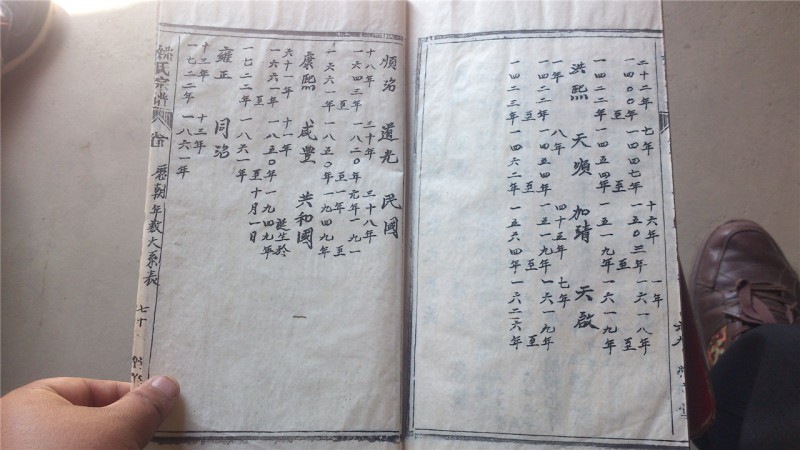 二十二年 七年 十六年 一年
一四〇〇年至 一四四七年至 一五〇三年至 一六一八年至
一四二二年 一四五四年 一五一九年 一六一九年
洪熙 天順 加靖 天啟
一年 八年 四十五年 七年
一四二二年至 一四五四年至 一五一九年至 一六一九年至
一四二三年 一四六二年 一五六四年 一六二六年
順治 道光 民國
十八年 三十年 三十八年
一六四三年至 一八二〇年至 元年一九一一年至
一六六一年 一八五〇年 一九四九年
康熙 咸豐 共和國
六十一年 十一年 誕生於
一六六一年至 一八五〇年至 一九四九年十月一日
一七二二年 一八六一年
雍正 同治
十三年 十三年
一七二二年 一八六一年
氏宗譜 歷朝年數大系表 七十